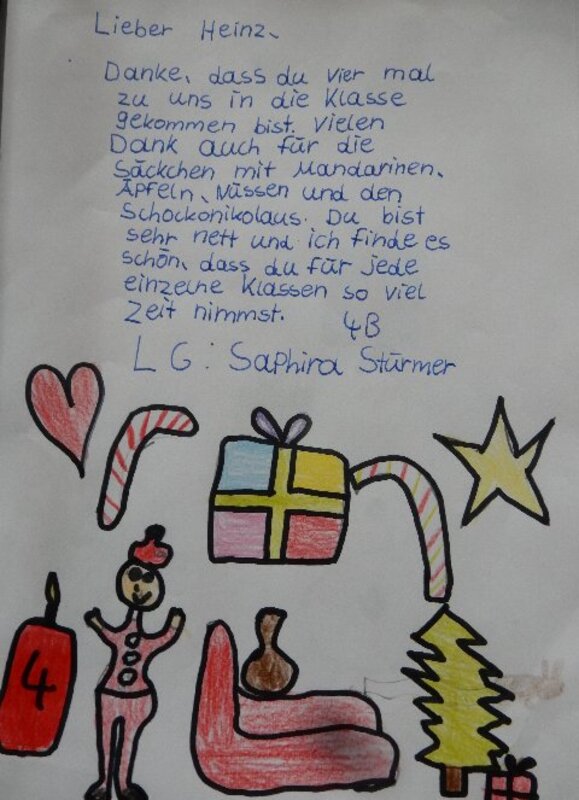 Lieber Heinz,
Danke, dass du vier mal
zu uns in die Klasse
gekommen bist. Vielen
Dank auch für die
Säckchen mit Mandarinen,
Äpfeln, Nüssen und den
Schockonikolaus. Du bist
sehr nett und ich finde es
schön, dass du für jede
einzelne Klassen so viel
Zeit nimmst. 4B
LG: Saphira Stürmer
4